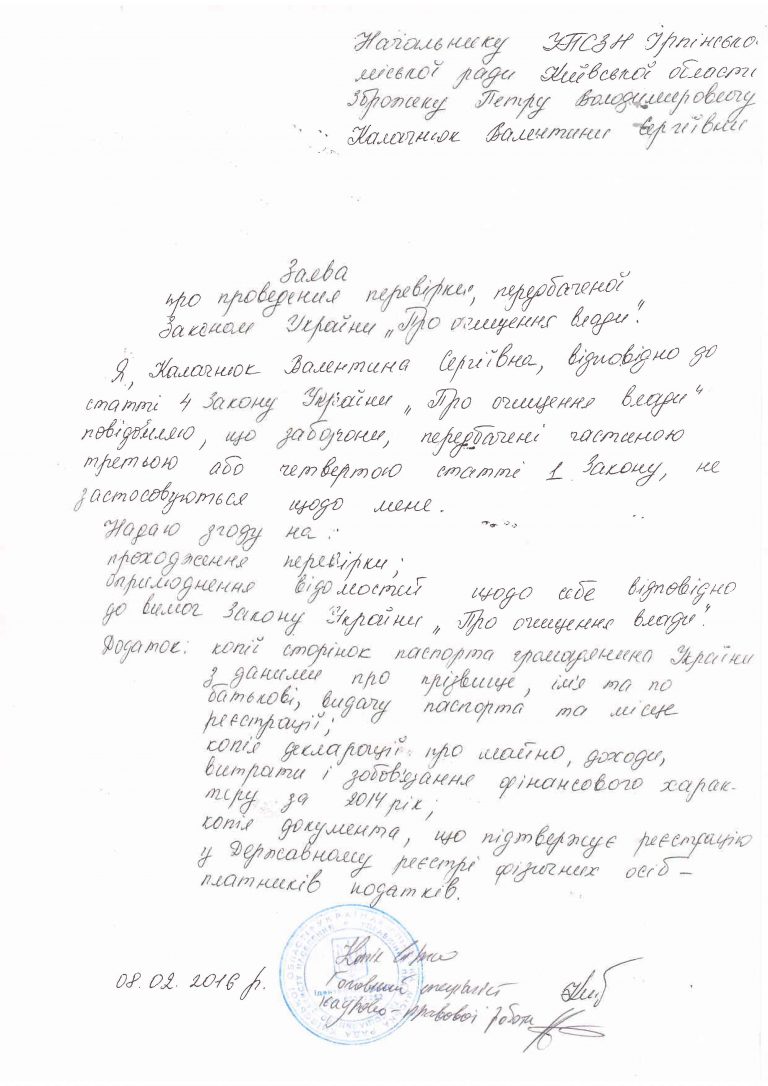 Начальнику УПСЗН Ірпінсько
міської ради Київської області
Зброжеку Петру Володимировичу
Калачнюк Валентини Сергіївни
Заява
про проведення перевірки, передбаченої
Законом України „Про очищення влади".
Я, Калачнюк Валентина Сергіївна, відповідно до
статті 4 Закону України „Про очищення влади"
повідомляю, що заборони, передбачені частиною
третьою або четвертою статті 1 Закону, не
застосовуються щодо мене.
Надаю згоду на:
проходження перевірки;
оприлюднення відомостей щодо себе відповідно
до вимог Закону України „Про очищення влади".
Додаток: копії сторінок паспорта громадянина України
з даними про прізвище, ім'я та по
батькові, видачу паспорта та місце
реєстрації;
копія декларації про майно, доходи,
витрати і зобов'язання фінансового харак-
теру за 2014 рік;
копія документа, що підтверджує реєстрацію
у Державному реєстрі фізичних осіб –
платників податків.
08.02.2016 р.
Копія вірна
Головний спеціаліст
кадрово-правової роботи